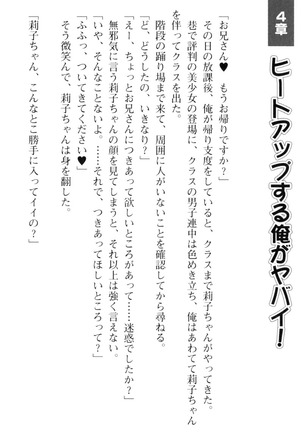 4章
ヒートアップする俺がヤバイ！
「お兄さん♥　もうお帰りですか？」
その日の放課後、俺が帰り支度をしていると、クラスまで莉子ちゃんがやってきた。
巷で評判の美少女の登場に、クラスの男子連中は色めき立ち、俺はあわてて莉子ちゃん
を伴ってクラスを出た。
階段の踊り場まで来て、周囲に人がいないことを確認してから尋ねる。
「ど、どうしたの、いきなり？」
「えー、ちょっとお兄さんにつきあって欲しいところがあって……迷惑でしたか？」
無邪気に言う莉子ちゃんの顔を見てしまうと、それ以上は強く言えない。
「いや、そんなことないよ。……それで、つきあってほしいところって？」
「ふふっ、ついてきてください♥」
そう微笑んで、莉子ちゃんは身を翻した。
「莉子ちゃん、こんなとこ勝手に入ってイイの？」